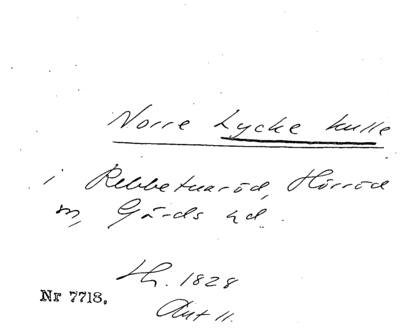 Norre Lycke kulle
i Rebbetuaröd, Hörröd
sn, Gärds hd.
Th. 1828
Ant 11.
Nr 7718.